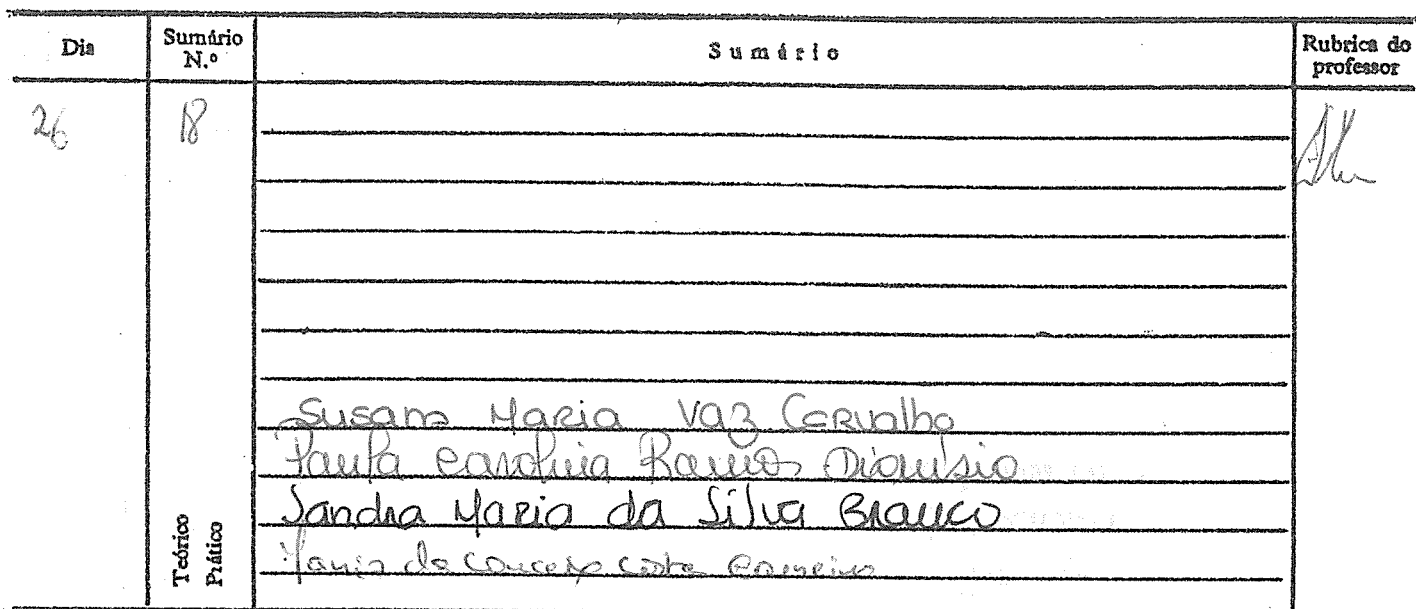 Dia Sumário N.º Sumário Rubrica do professor
26 18
Susana Maria Vaz Carvalho
Paula Carolina Ramos Dionísio
Sandra Maria da Silva Branco
Maria da Conceição Costa Carneiro
Teórico
Prático